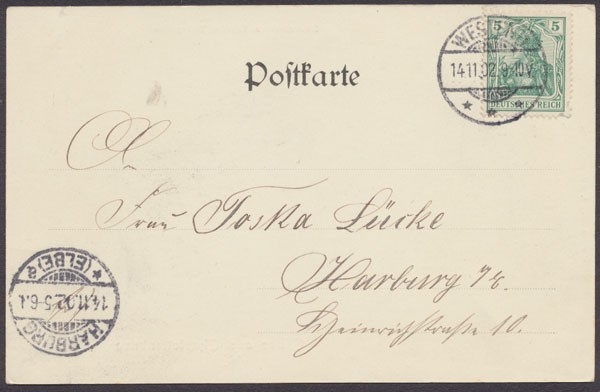 5 5
14.11.02.9-10V.
DEUTSCHES REICH
Postkarte
Frau Toska Lücke
Harburg a/E.
Heinrichstraße 10.
HARBURG
14.11.02.5-6.
(ELBE)